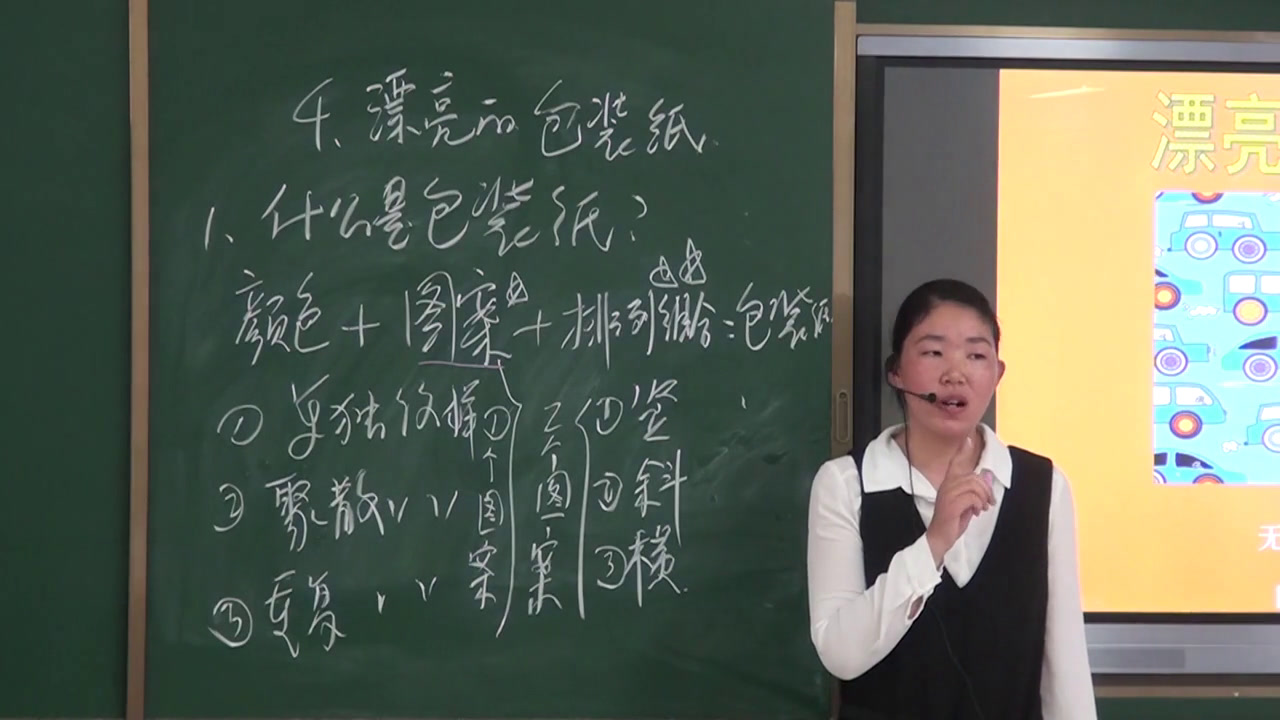 4、漂亮的包装纸
1、什么是包装纸？
颜色+图案+排列组合=包装纸
① 单独纹样
② 聚散〃〃
③ 重复〃〃
个图案
个图案
①竖
②斜
③横
漂亮
无